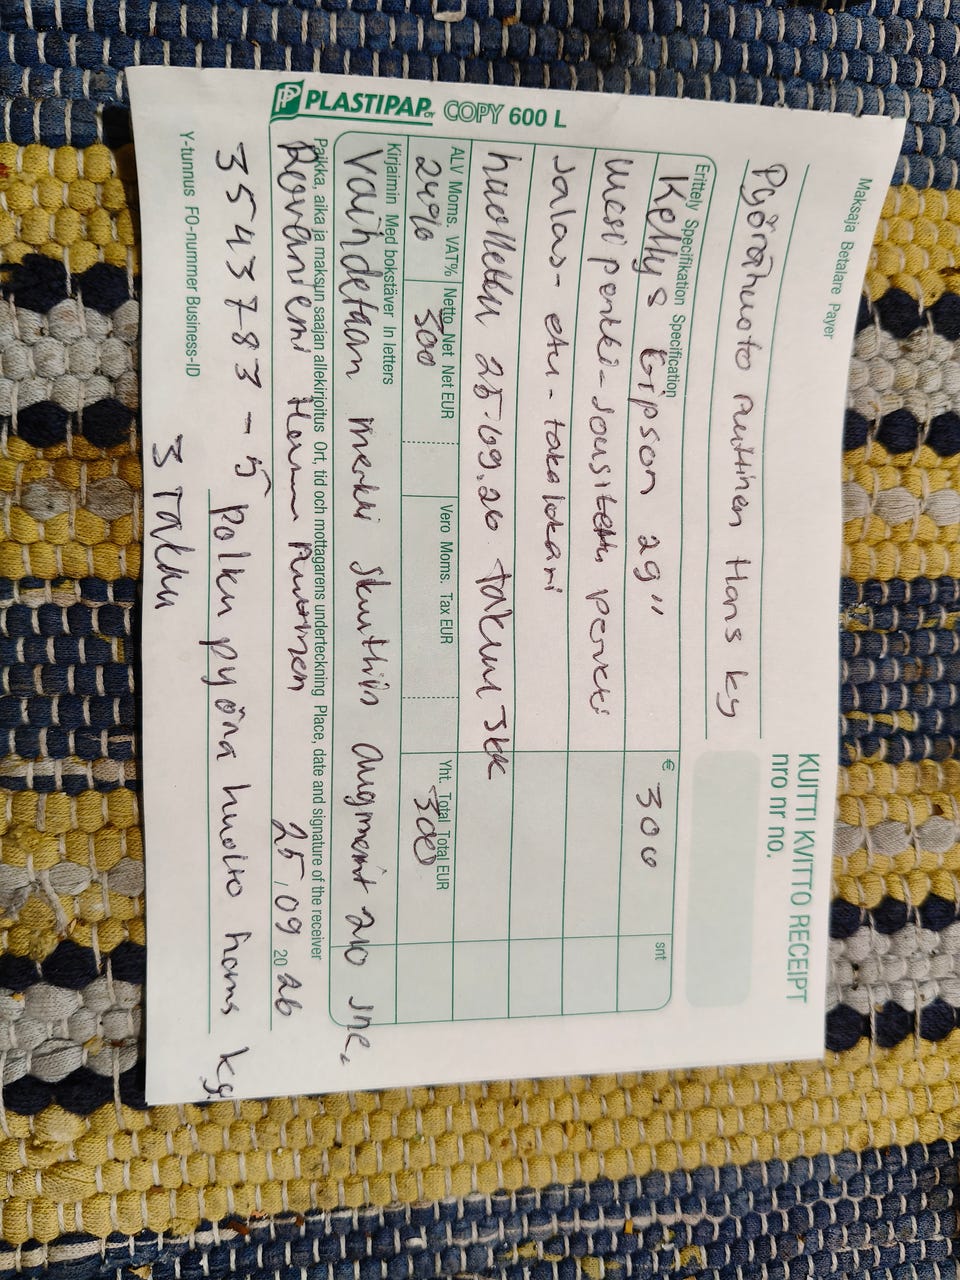 Maksaja Betalare Payer
KUITTI KVITTO RECEIPT
nro nr no.
Pyörähuoto ruttinen Hans ky
Erittely Spesifikation Specification
€
snt
Kellys Gripson 29"
300
uusi penkki-Jousitettu penkki
Jalas- etu- takalokari
huollettu 25.09.26 takuu 3kk
ALV Moms. VAT%
Netto Net Net EUR
Vero Moms. Tax EUR
Yht. Total Total EUR
24%
300
300
Kirjaimin Med bokstäver In letters
Vaihdetaan merkki skuttiin augment 210
Paikka, aika ja maksun saajan allekirjoitus Ort, tid och mottagarens underteckning Place, date and signature of the receiver
Rovaniemi 25.09 2026
3543783-5 Polkupyörä huolto hans ky
Y-tunnus FO-nummer Business-ID
3 Takuu
PLASTIPAP OY COPY 600 L